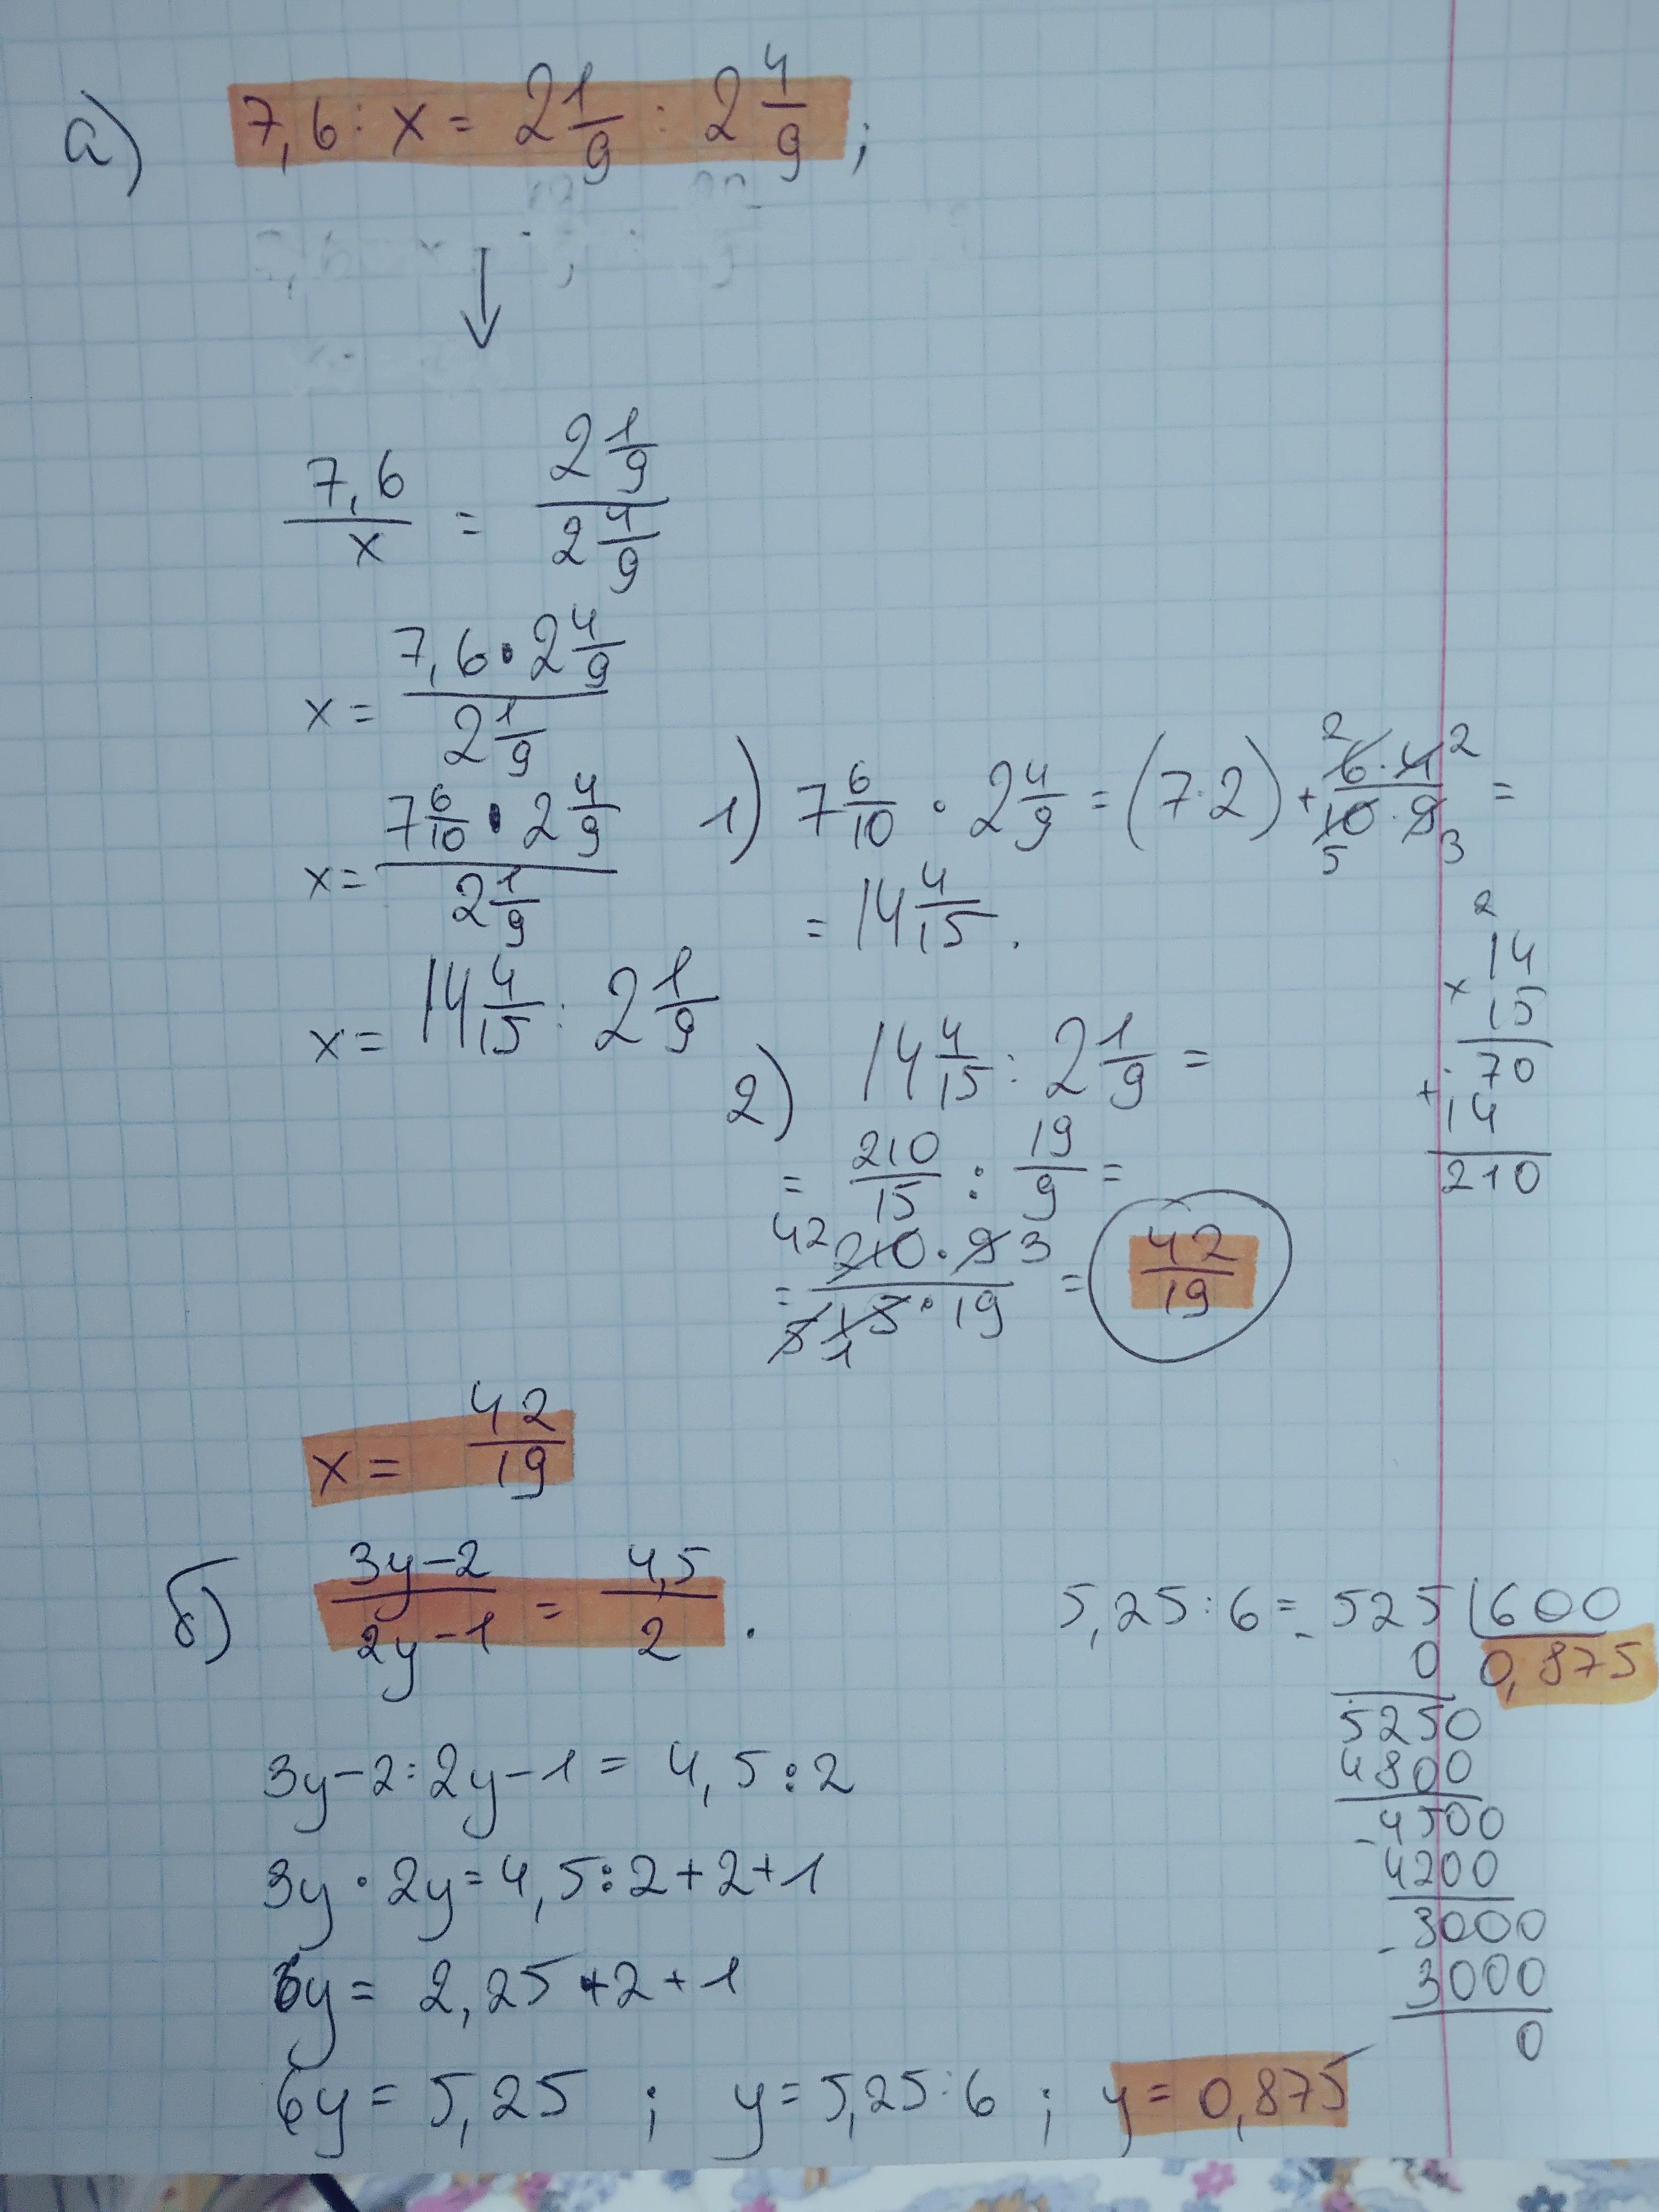 а) 7,6 : x = 2 1/9 : 2 4/9 ;
↓
7,6/x = 2 1/9 / 2 4/9
x = 7,6 · 2 4/9 / 2 1/9
x = 7 6/10 · 2 4/9 / 2 1/9
1) 7 6/10 · 2 4/9 = (7·2) + 2 6·4 2 / 10·9 5 3 =
= 14 4/15 .
x = 14 4/15 : 2 1/9
2) 14 4/15 : 2 1/9 =
= 210/15 : 19/9 =
= 42 210 · 9 3 / 5 15 · 19 1 = 42/19
2
× 14
15
70
+ 14
210
x = 42/19
б) 3y-2/2y-1 = 4,5/2 .
3y-2 : 2y-1 = 4,5 : 2
3y · 2y = 4,5 : 2 + 2 + 1
6y = 2,25 + 2 + 1
6y = 5,25 ; y = 5,25 : 6 ; y = 0,875
5,25 : 6 = - 525 | 600
0 0,875
5250
4800
- 4500
4200
- 3000
3000
0